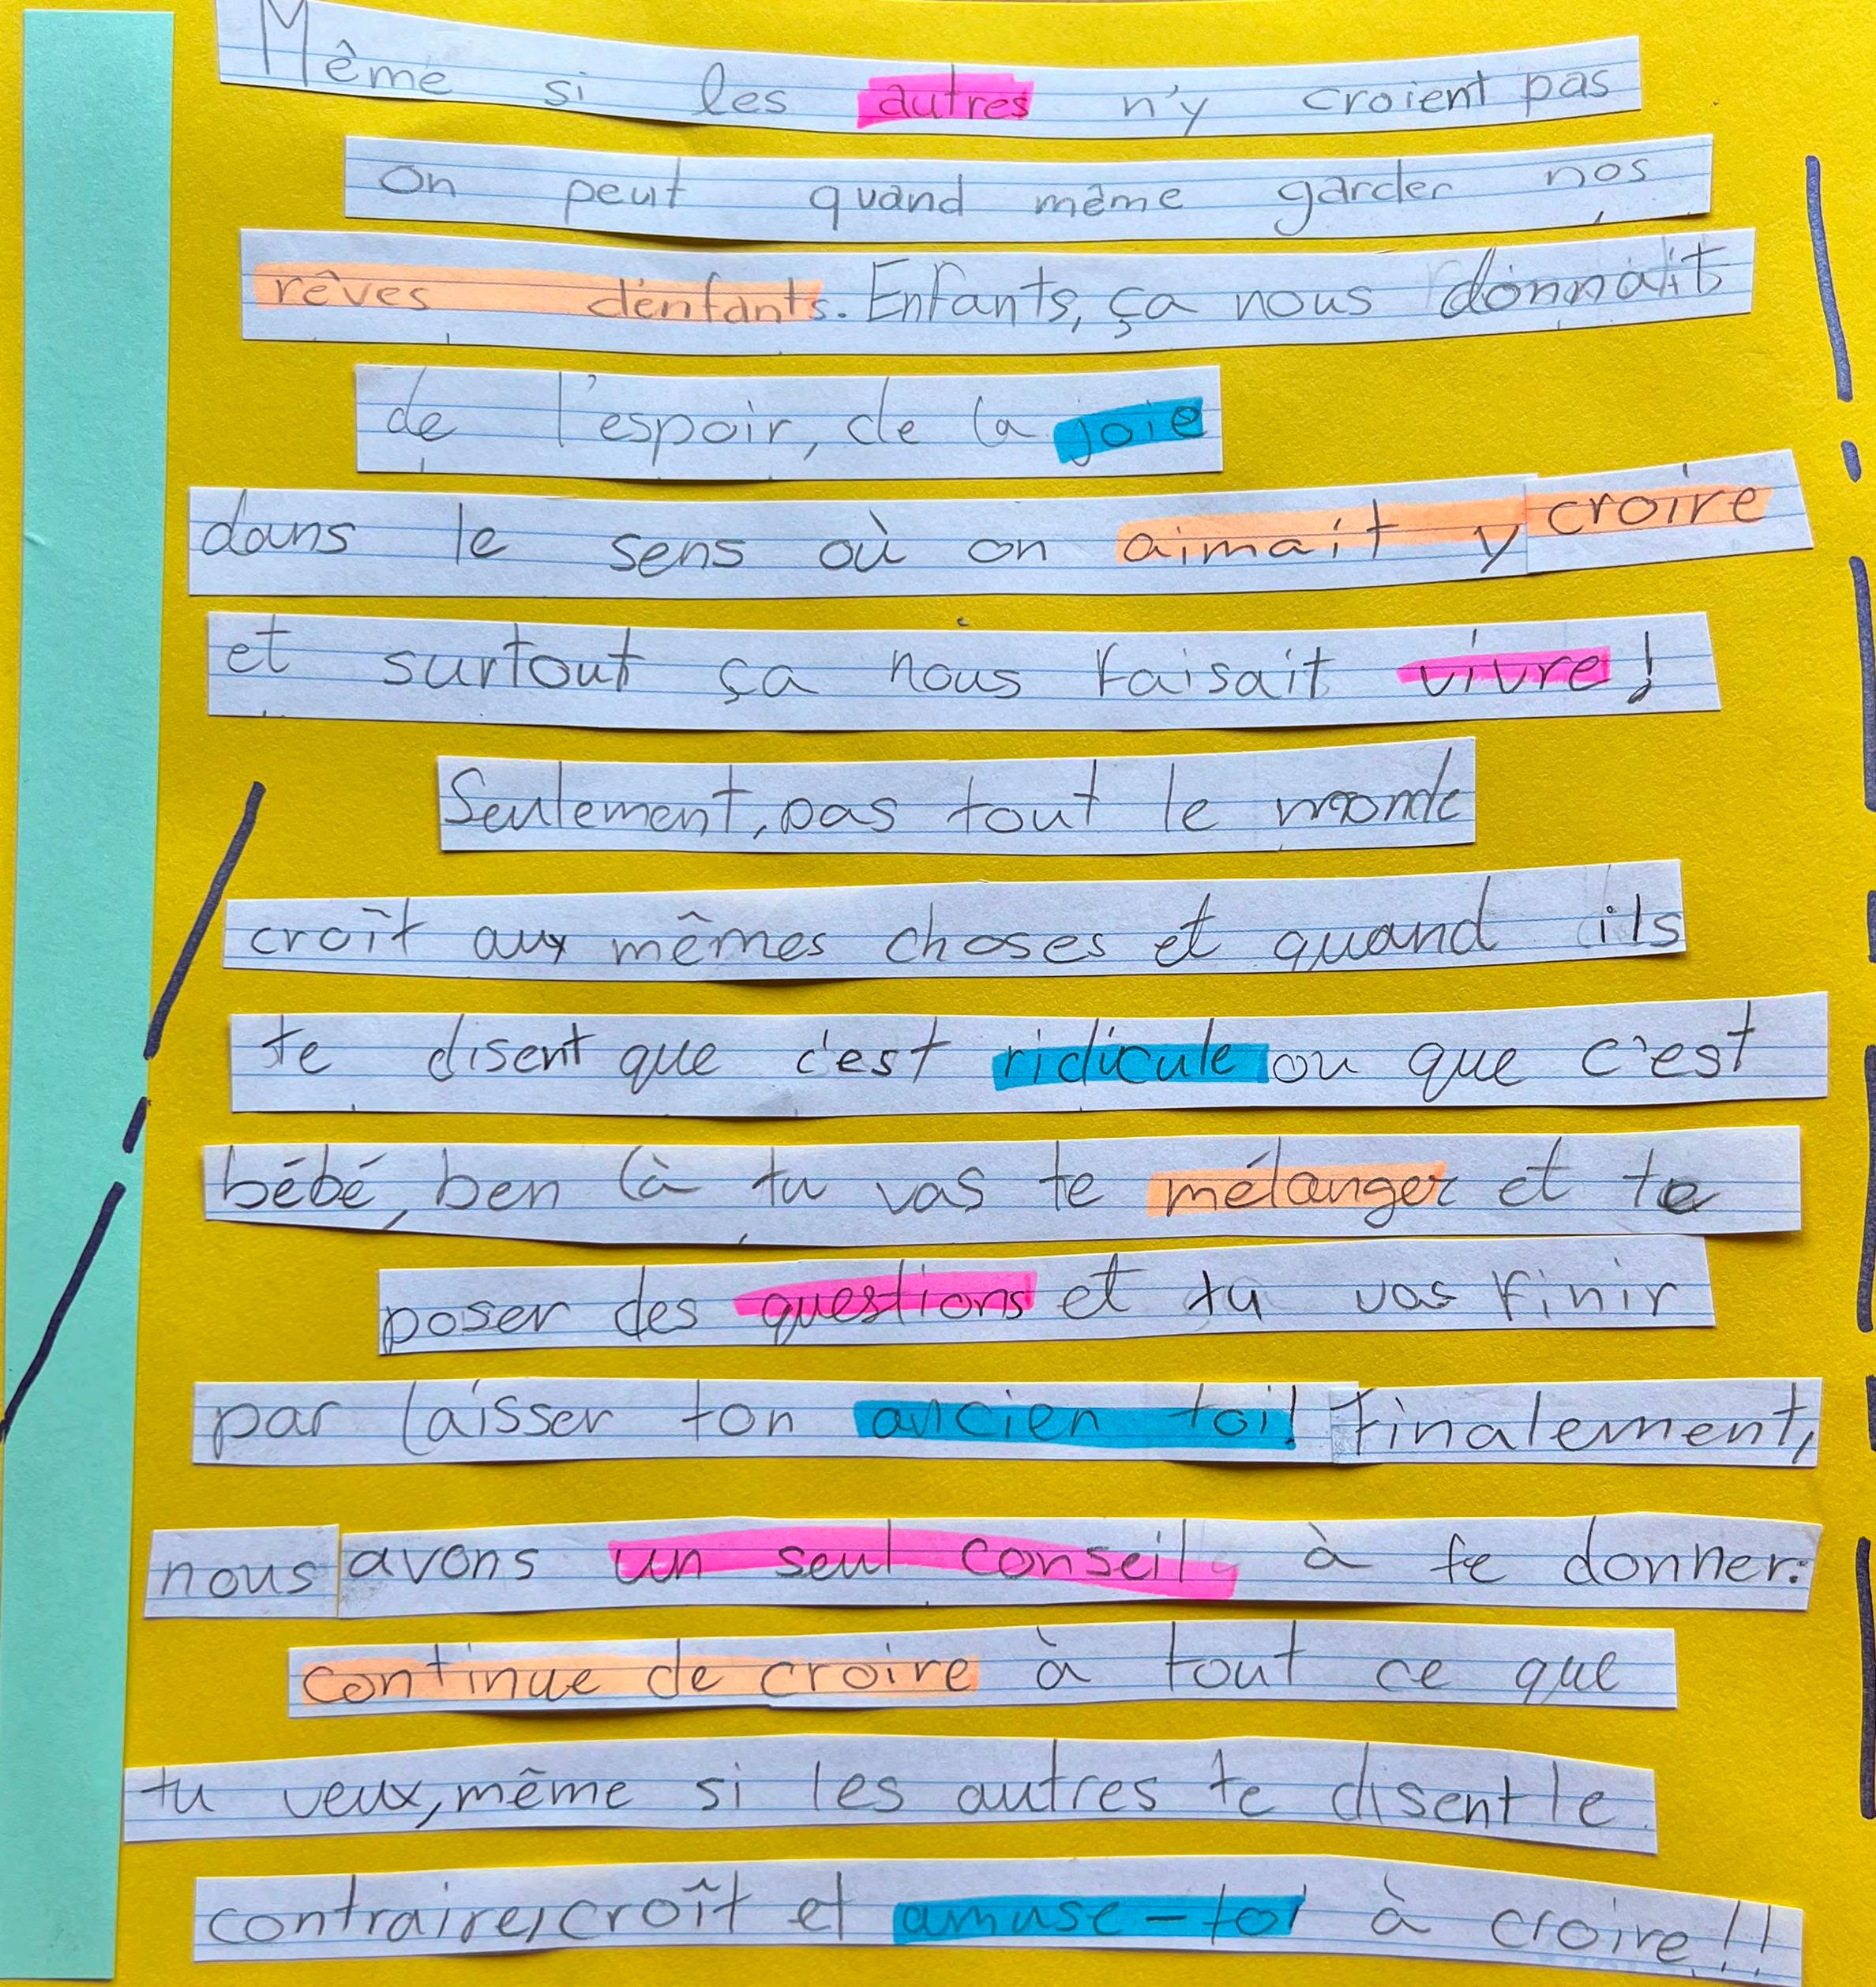 Même si les autres n'y croient pas
on peut quand même garder nos
rêves d'enfants. Enfants, ça nous donnait
de l'espoir, de la joie
dans le sens où on aimait y croire
et surtout ça nous faisait vivre!
Seulement, pas tout le monde
croît aux mêmes choses et quand ils
te disent que c'est ridicule ou que c'est
bébé, ben là tu vas te mélanger et te
poser des questions et tu vas finir
par laisser ton ancien toi! Finalement,
nous avons un seul conseil à te donner:
continue de croire à tout ce que
tu veux, même si les autres te disent le
contraire, croît et amuse-toi à croire!!